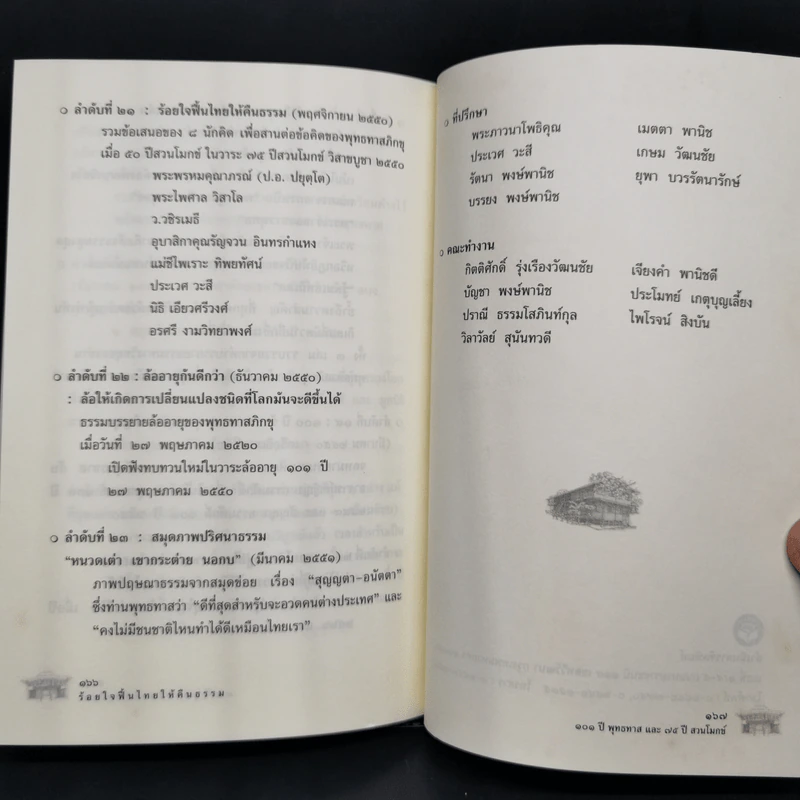 ๐ ลำดับที่ ๒๑ : ร้อยใจฟื้นไทยให้คืนธรรม (พฤศจิกายน ๒๕๕๐)
รวมข้อเสนอของ ๘ นักคิด เพื่อสานต่อข้อคิดของพุทธทาสภิกขุ
เมื่อ ๕๐ ปีสวนโมกข์ ในวาระ ๗๕ ปีสวนโมกข์ วิสาขบูชา ๒๕๕๐
พระพรหมคุณาภรณ์ (ป.อ. ปยุตฺโต)
พระไพศาล วิสาโล
ว.วชิรเมธี
อุบาสิกาคุณรัญจวน อินทรกำแหง
แม่ชีไพเราะ ทิพยทัศน์
ประเวศ วะสี
นิธิ เอียวศรีวงศ์
อรศรี งามวิทยาพงศ์
๐ ลำดับที่ ๒๒ : ล้ออายุกันดีกว่า (ธันวาคม ๒๕๕๐)
: ล้อให้เกิดการเปลี่ยนแปลงชนิดที่โลกมันจะดีขึ้นได้
ธรรมบรรยายล้ออายุของพุทธทาสภิกขุ
เมื่อวันที่ ๒๗ พฤษภาคม ๒๕๒๐
เปิดฟังทบทวนใหม่ในวาระล้ออายุ ๑๐๑ ปี
๒๗ พฤษภาคม ๒๕๕๐
๐ ลำดับที่ ๒๓ : สมุดภาพปริศนาธรรม
“หนวดเต่า เขากระต่าย นอกบ” (มีนาคม ๒๕๕๑)
ภาพปฤษณาธรรมจากสมุดข่อย เรื่อง “สุญญตา-อนัตตา”
ซึ่งท่านพุทธทาสว่า “ดีที่สุดสำหรับจะอวดคนต่างประเทศ” และ
“คงไม่มีชนชาติไหนทำได้ดีเหมือนไทยเรา”
๑๖๖
ร้อยใจฟื้นไทยให้คืนธรรม
๐ ที่ปรึกษา
พระภาวนาโพธิคุณ เมตตา พานิช
ประเวศ วะสี เกษม วัฒนชัย
รัตนา พงษ์พานิช ยุพา บวรรัตนารักษ์
บรรยง พงษ์พานิช
๐ คณะทำงาน
กิตติศักดิ์ รุ่งเรืองวัฒนชัย เจียงคำ พานิชดี
บัญชา พงษ์พานิช ประโมทย์ เกตุบุญเลี้ยง
ปราณี ธรรมโสภินท์กุล ไพโรจน์ สิงบัน
วิลาวัลย์ สุนันทวดี
๑๖๗
๑๐๑ ปี พุทธทาส และ ๗๕ ปี สวนโมกข์